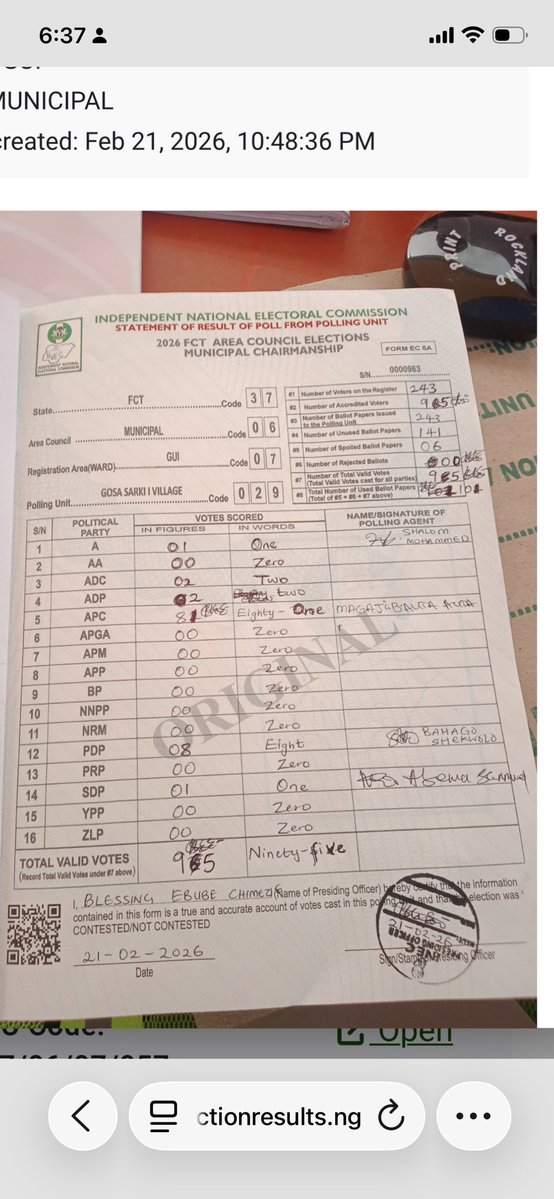 6:37
MUNICIPAL
created: Feb 21, 2026, 10:48:36 PM
PRINT
ROCKLAND
INDEPENDENT NATIONAL ELECTORAL COMMISSION
STATEMENT OF RESULT OF POLL FROM POLLING UNIT
2026 FCT AREA COUNCIL ELECTIONS
MUNICIPAL CHAIRMANSHIP
FORM EC 8A
S/N 0000963
State FCT Code 3 7
Area Council MUNICIPAL Code 0 6
Registration Area(WARD) GUI Code 0 7
Polling Unit GOSA SARKI I VILLAGE Code 0 2 9
#1 Number of Voters on the Register 243
#2 Number of Accredited Voters
#3 Number of Ballot Papers Issued to the Polling Unit 243
#4 Number of Unused Ballot Papers 141
#5 Number of Spoiled Ballot Papers 06
#6 Number of Rejected Ballots 00
#7 Number of Total Valid Votes (Total Valid Votes cast for all parties)
#8 Total Number of Used Ballot Papers (Total of #5 + #6 + #7 above) 101
S/N POLITICAL PARTY VOTES SCORED NAME/SIGNATURE OF POLLING AGENT
IN FIGURES IN WORDS
1 A 01 One SHALOM MOHAMMED
2 AA 00 Zero
3 ADC 02 Two
4 ADP two
5 APC 81 Eighty - One
6 APGA 00 Zero
7 APM 00 Zero
8 APP 00 Zero
9 BP 00 Zero
10 NNPP 00 Zero
11 NRM 00 Zero
12 PDP 08 Eight BAHAGO
13 PRP 00 Zero
14 SDP 01 One
15 YPP 00 Zero
16 ZLP 00 Zero
ORIGINAL
TOTAL VALID VOTES Ninety-five
(Record Total Valid Votes under #7 above)
I, BLESSING EBUBE CHIMEZIE (Name of Presiding Officer) hereby certify that the information
contained in this form is a true and accurate account of votes cast in this polling unit and that the election was
CONTESTED/NOT CONTESTED
21-02-2026
Date
21-02-26
PRESIDING OFFICER
INEC
Sign/Stamp Presiding Officer
Open
ctionresults.ng